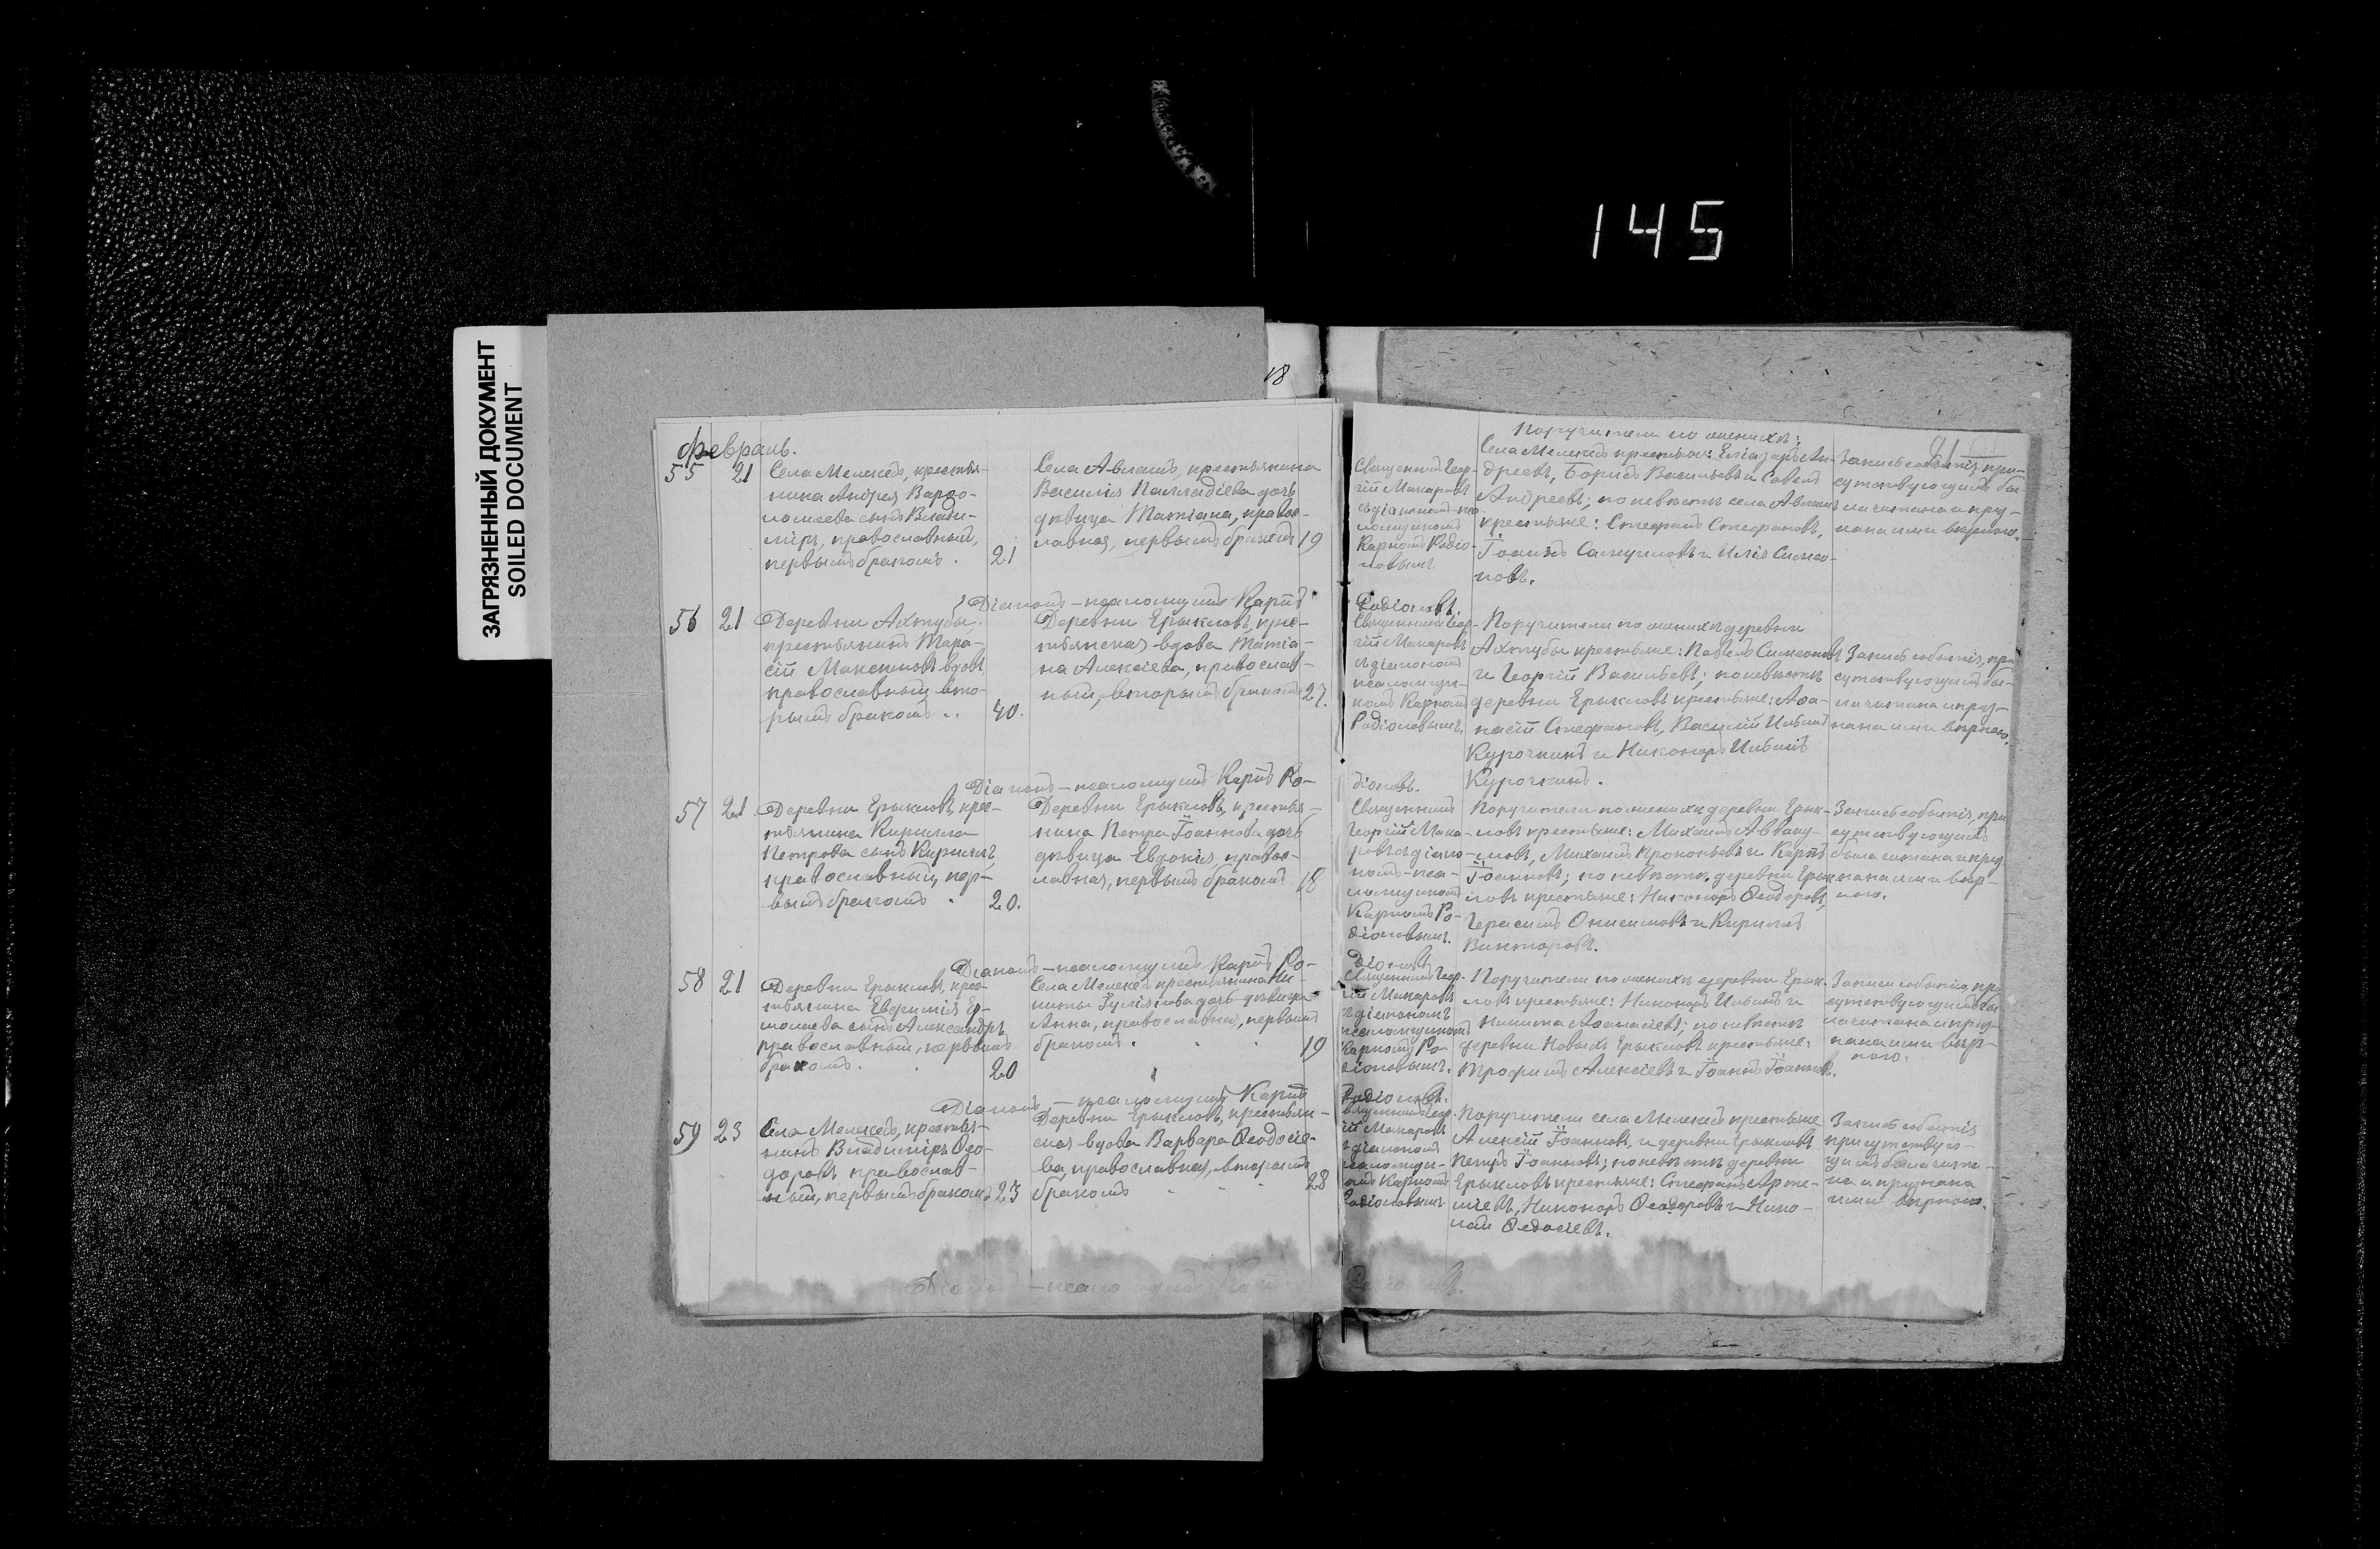 145
ЗАГРЯЗНЕННЫЙ ДОКУМЕНТ
SOILED DOCUMENT
18
Февраль.
55 21
Села Мелекесъ, крестья-
нина Андрея Варѳо-
ломеева сынъ Влади-
міръ, православный,
первымъ бракомъ. 21
Села Авлашъ, крестьянина
Василія Палладіева дочь
дѣвица Татіана, правос-
лавная, первымъ бракомъ 19
Священникъ Геор-
гій Макаровъ
съ діакономъ-пса-
ломщикомъ
Карпомъ Родіо-
новымъ.
Поручители по женихѣ:
Села Мелекесъ крестьяне: Еліазаръ Ан-
дреевъ, Борисъ Васильевъ и Савелъ
Андреевъ; по невѣстѣ села Авлашъ
крестьяне: Стефанъ Стефановъ,
Іоаннъ Самуиловъ и Илія Симео-
новъ.
Запись событія, при-
сутствующимъ бы-
ла читана и приз-
нана ими вѣрною.
Діаконъ-псаломщикъ Карпъ Родіоновъ.
56 21
Деревни Ахтубы
крестьянинъ Тара-
сій Максимовъ вдовъ,
православный, вто-
рымъ бракомъ .. 40.
Деревни Ерыкловъ, крес-
тьянская вдова Татіа-
на Алексіева, православ-
ный, вторымъ бракомъ 27.
Священникъ Геор-
гій Макаровъ
съ діакономъ
псаломщи-
комъ Карпомъ
Родіоновымъ.
Поручители по женихѣ деревни
Ахтубы крестьяне: Павелъ Симеоновъ
и Георгій Васильевъ; по невѣстѣ
деревни Ерыкловъ крестьяне: Аѳа-
насій Стефановъ, Василій Ильинъ
Курочкинъ и Никоноръ Ильинъ
Курочкинъ.
Запись событія, при
сутствующимъ бы-
ла читана и приз-
нана ими вѣрною.
Діаконъ-псаломщикъ Карпъ Ро-
діоновъ.
57 21
Деревни Ерыкловъ, крес-
тьянина Кирилла
Петрова сынъ Кириллъ,
православный, пер-
вымъ бракомъ . 20.
Деревни Ерыкловъ, крестья-
нина Петра Іоаннова дочь
дѣвица Евдокія, правос-
лавная, первымъ бракомъ 18
Священникъ
Георгій Мака-
ровъ съ діако-
номъ-пса-
ломщикомъ
Карпомъ Ро-
діоновымъ.
Поручители по женихѣ деревни Ерык-
ловъ крестьяне: Михаилъ Авваку-
мовъ, Михаилъ Прокопьевъ и Карпъ
Іоанновъ; по невѣстѣ, деревни Ерык-
ловъ крестьяне: Никоноръ Ѳеодоровъ,
Герасимъ Онисимовъ и Кириллъ
Викторовъ.
Запись событія, при
сутствующимъ
была читана и приз
нана ими вѣр-
ною.
Діаконъ-псаломщикъ Карпъ Ро-
діоновъ
58 21
Деревни Ерыкловъ, крес-
тьянина Евфимія Ер-
молаева сынъ Александръ
православный, первымъ
бракомъ. 20
Села Мелекесъ крестьянина Ни-
киты Іуліанова дочь дѣвица
Анна, православная, первымъ
бракомъ. 19
Священникъ Геор-
гій Макаровъ
съ діакономъ
псаломщикомъ
Карпомъ Ро-
діоновымъ.
Поручители по женихѣ деревни Ерык-
ловъ крестьяне: Никоноръ Ильинъ и
Никита Аѳанасіевъ; по невѣстѣ
деревни Новыхъ Ерыкловъ крестьяне:
Трофимъ Алексіевъ и Іоаннъ Іоанновъ.
Запись событія, при
сутствующимъ бы
ла читана и приз-
нана ими вѣр-
ною.
Діаконъ-псаломщикъ Карпъ
Родіоновъ.
59 23
Села Мелекесъ, крестья-
нинъ Владиміръ Ѳео-
доровъ православ-
ный, первымъ бракомъ 23
Деревни Ерыкловъ, крестьян-
ская вдова Варвара Ѳеодосіе-
ва, православная, вторымъ
бракомъ 28
Священникъ Геор-
гій Макаровъ
съ діакономъ
псаломщи-
комъ Карпомъ
Родіоновымъ.
Поручители села Мелекесъ крестьяне
Алексій Іоанновъ, и деревни Ерыкловъ
Петръ Іоанновъ; по невѣстѣ деревни
Ерыкловъ крестьяне: Стефанъ Арте-
міевъ, Никоноръ Ѳеодоровъ и Нико-
лай Ѳедосіевъ.
Запись событія
присутствую-
щимъ была чита-
на и признана
ими вѣрною.
Діаконъ-псаломщикъ Карпъ